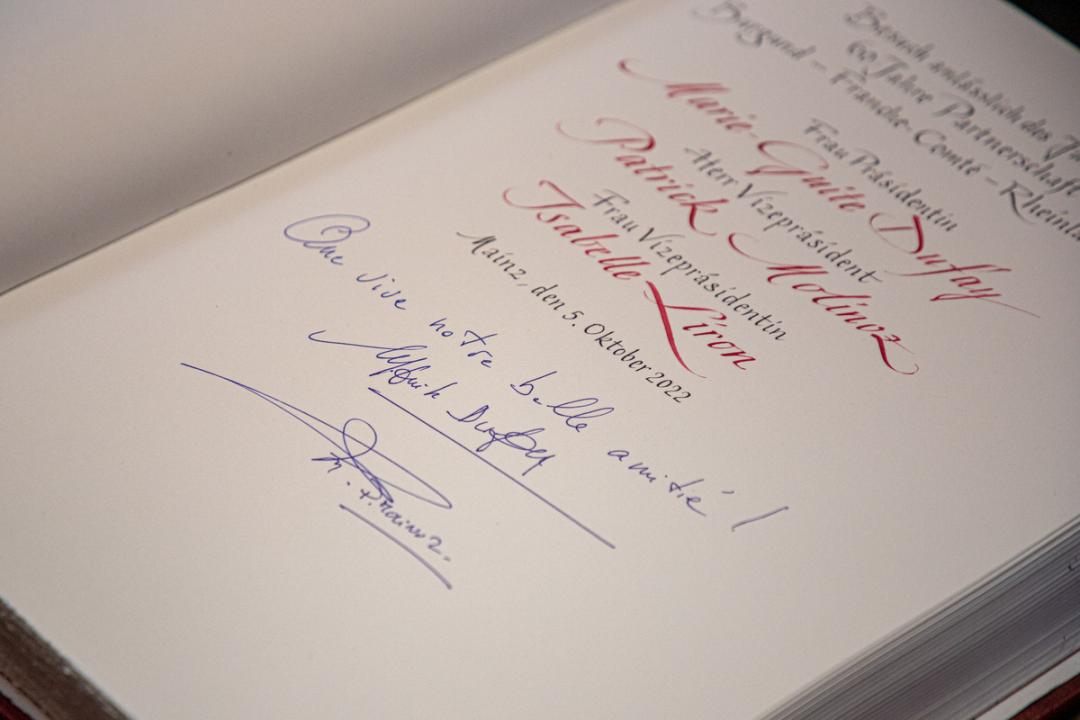 Besuch anlässlich des
60 Jahre Partnerschaft
Burgund – Franche-Comté –
Frau Präsidentin
Marie-Guite Dufay
Herr Vizepräsident
Patrick Molinoz
Frau Vizepräsidentin
Isabelle Liron
Mainz, den 5. Oktober 2022
Que vive notre belle amitié !